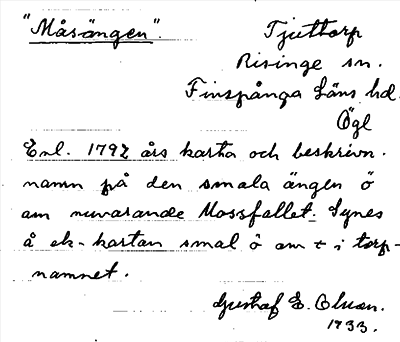 "Måsängen".
Tjuttorp
Risinge sn.
Finspånga läns hd.
Ögl
Enl. 1792 års karta och beskrivn.
namn på den smala ängen ö
om nuvarande Mossfallet. Synes
å ek-kartan smal ö om t i torp-
namnet.
Gustaf E. Olsson.
1933.